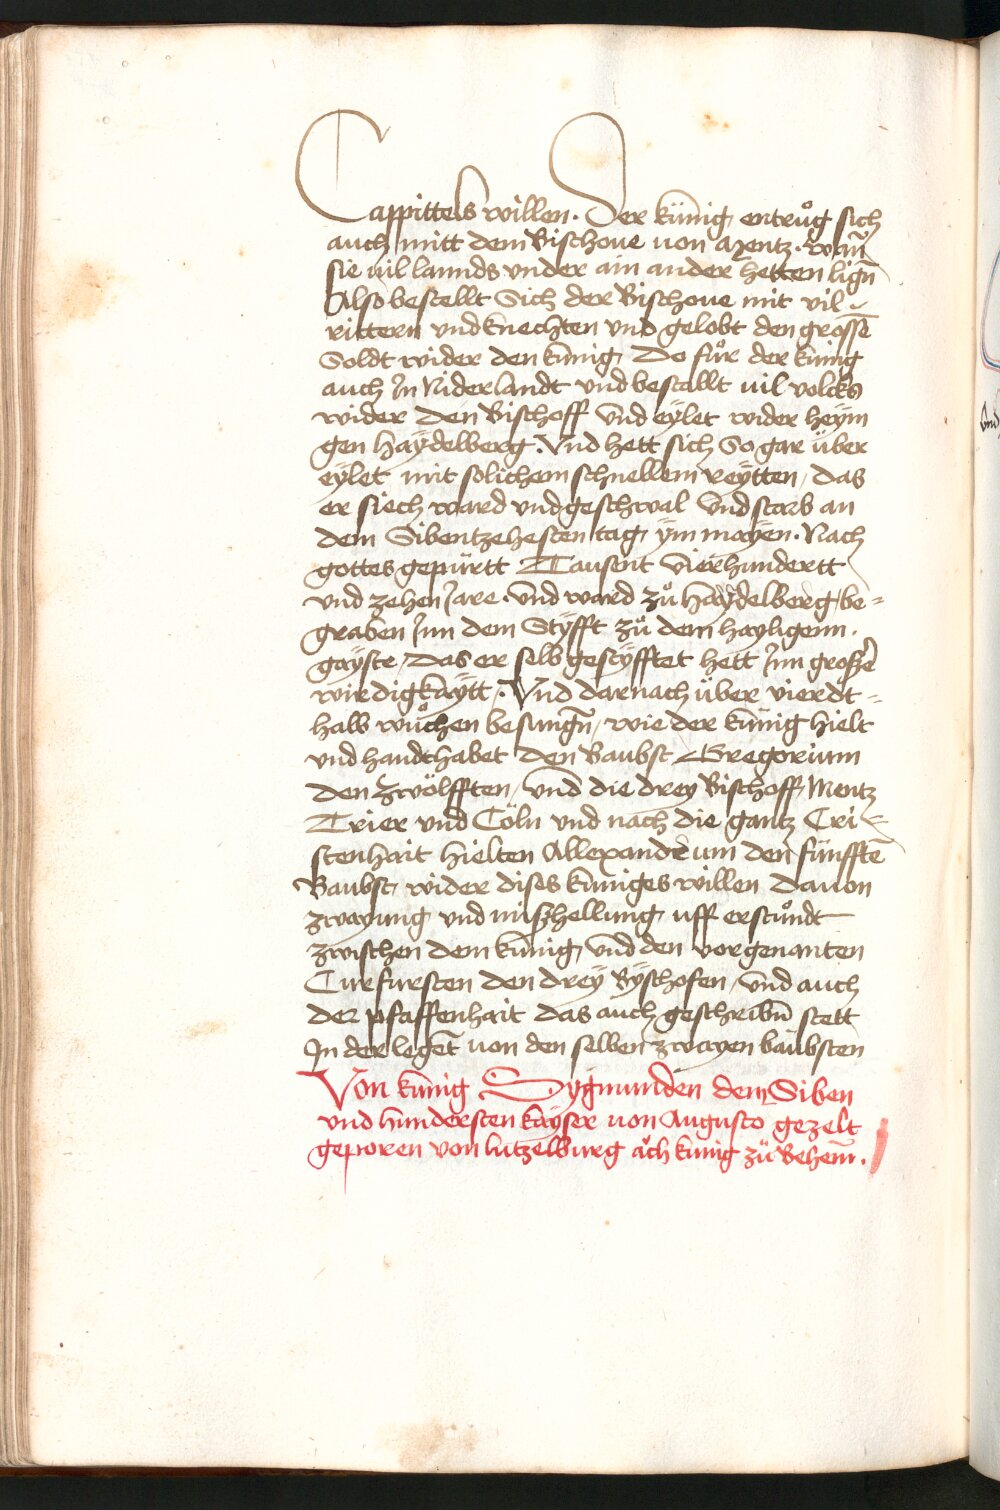 Cappittels willen. Der künig entrůg sich
auch mitt dem Bischoue uon Mentz. wañ
sie uil lannds vnder ain ander hetten ligñ
Also bestellt Sich der Bischoue mit vil
rittern vnd knechten vnd gelobt den grossē
Soldt wider den künig Do fůr der künig
auch In Niderlandt vnd bestallt uil volcks
wider den Bischoff vnd eylet wider heÿm
gen haÿdelberg. Vnd hett sich So gar über
eÿlet mit solichem schnellem reÿtten, das
er siech ward vnd geschwal vnd starb an
dem Sibentzehesten tag ÿm mayen. Nach
gottes gepürtt Tausent vierhundertt
vnd zehen Jare. vnd ward zů haÿdelberg be-
graben Jnn dem Stÿfft zů dem hayligenn.
gayste, das er selb gestÿfftet hett Jnn großer
wirdigkaÿtt. Vnd darnach über vierdt-
halb wůchen besungñ, wie der künig hielt
vnd handthabet den Baubst Gregorium
den zwölfften, vnd die drey Bischoff Mentz
Trier vnd Cöln vnd nach die gantz Cri-
stenhait hielten Allexanderum den fünfftē
Baubst wider dises küniges willen dauon
zwayung vnd mißhellung uff erstůndt
zwischen dem künig vnd den vorgenanten
Curfursten den dreÿ Bÿschofen, vnd auch
der pfaffenhait das auch geschribñ stett
In der legēt uon den selben zwayen baubsten
Von künig Sygmunden dem Siben
vnd hundersten kayser uon Augusto gezelt
geporen von lutzelburg ach künig zů Behem̄.